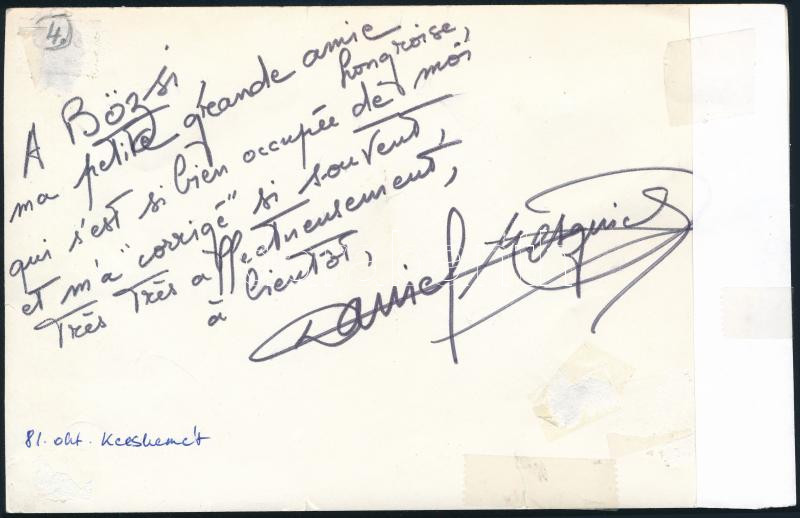 4.
A Bözsi,
ma petite grande amie
hongroise,
qui s'est si bien occupée de moi
et m'a "corrigé" si souvent,
Très Très affectueusement,
à bientôt,
Daniel Mesguich
81. okt. Kecskemét